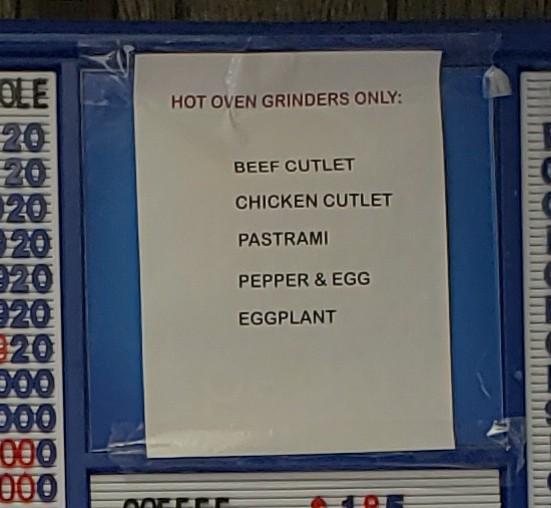 OLE
20
20
920
920
920
920
920
000
000
000
000
HOT OVEN GRINDERS ONLY:
BEEF CUTLET
CHICKEN CUTLET
PASTRAMI
PEPPER & EGG
EGGPLANT
COFFEE